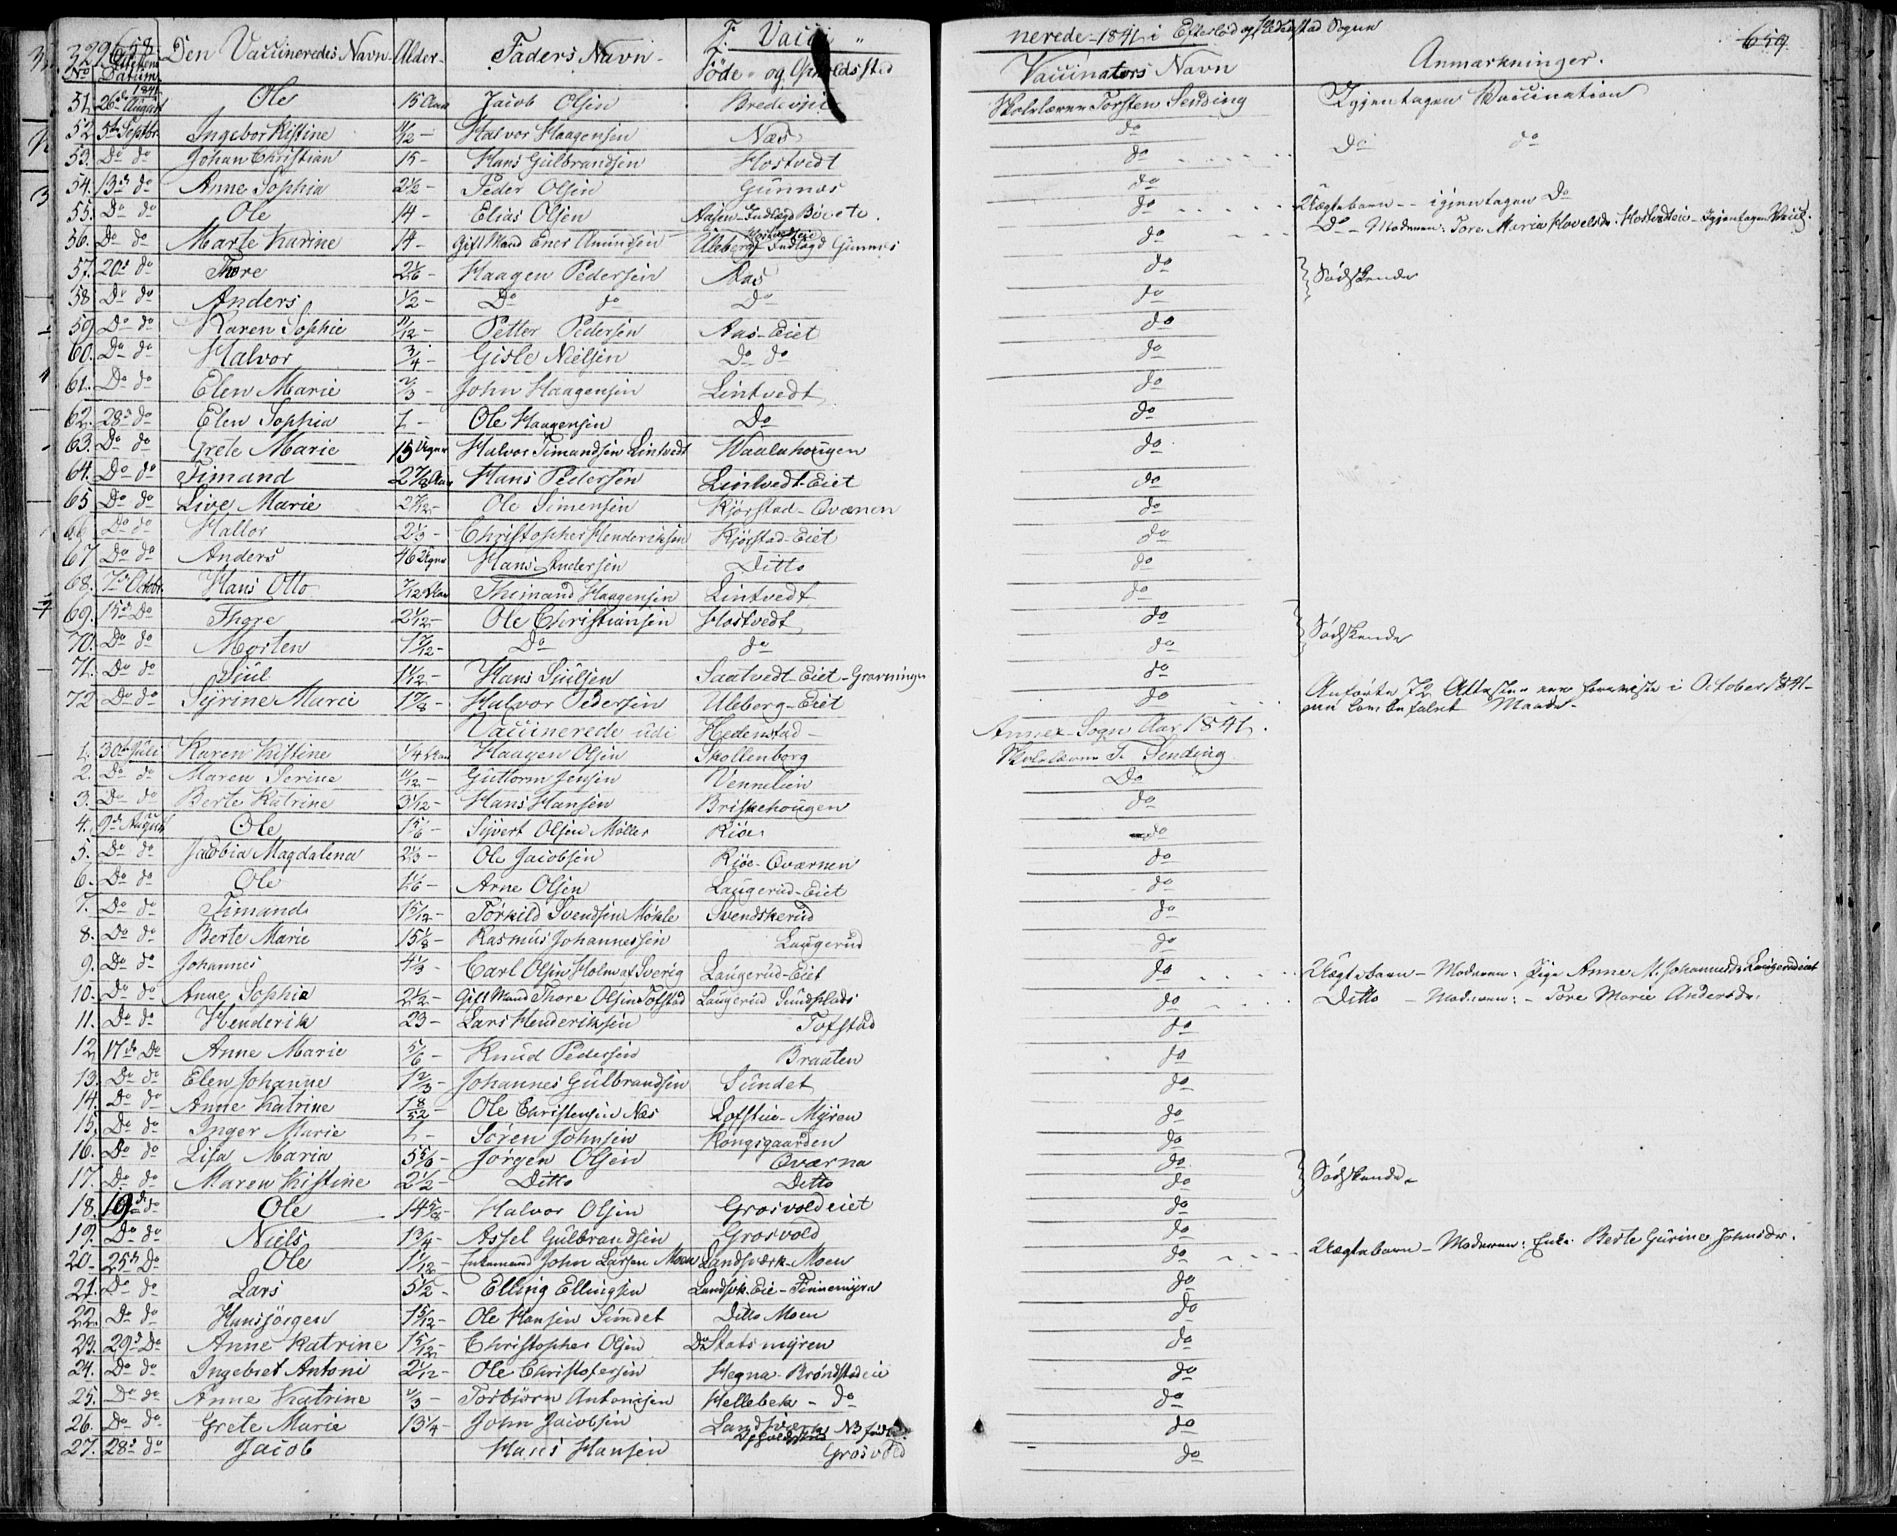 658. Den Vaccineredes Navn Alder Faders Navn Vacci nerede 1841 i Eftelød og Hedenstad Sogne 659
No Datum Føde- og Opholdssted Vaccinators Navn Anmærkninger.
51. 26de August 1841 Ole 15 Aar Jacob Olsen Skolelærer Torsten Sending Igjentagen Vaccination
52. 5te Septbr. Ingebor Kistine Halvor Haagensen Næs do Do do
53. Do do Johan Christian 15 - Hans Gulbrandsen Hostvedt do
54. 13de do Anne Sophia 2½ - Peder Olsen Gunnæs do
55. Do do Ole 14 - Elias Olsen Aasen - Indlægd do Uægtebarn - - igjentagen Do
56. Do do Marte Karine 14 - Gift Mand Ener Amundsen Uleberg Indlægd Gunnes do Do - Moderen: Tore Maria Igjentagen Vacc.
57. 20de do Thore 2⅙ - Haagen Pedersen Aas do Sødskende
58. Do do Anders ½ - Do do Do do
59. Do do Karen Sophie 11/12 - Petter Pedersen Aas-Eiet do
60. Do do Halvor ¾ - Gisle Nielsen Do do do
61. Do do Elen Marie ⅔ - John Haagensen Lintvedt do
62. 28de do Elen Sophia Ole Haagensen Do do
63. Do do Grete Marie 15 Uger Halvor Timandsen Lintvedt Waalahougen do
64. Do do Timand Hans Pedersen Lintvedt-Eiet do
65. Do do Live Marie Ole Simensen Kjørstad-Qværnen do
66. Do do Hallor 2⅓ - Christopher Henderiksen Kjørstad-Eiet do
67. Do do Anders 46 Uger Hans Andersen Ditto do
68. 7de Octobr. Hans Otto 7/12 Aar Thimand Haagensen Lintvedt do
69. 15de Do Thore Ole Christiansen Hostvedt do Sødskende
70. Do do Morten Do do do
71. Do do Siul Hans Siulsen Saatvedt-Eiet-Gravningen do
72. Do do Syrine Marie Halvor Pedersen Uleberg-Eiet do Anførte 72 Attester ere foreviste i October 1841
Vaccinerede udi Hedenstad Annex Sogn Aar 1841. paa Maade.
1. 30te Juli Karen Kistine ¼ Aar Haagen Olsen Skollenborg Skolelærer T. Sending
2. Do do Maren Serine 11/12 - Guttorm Jensen Vennelien Do
3. Do do Berte Katrine 3 1/12 - Hans Hansen Briskehougen do
4. 9de August Ole Syvert Olsen Møller Kiøe do
5. Do do Jacobia Magdalena 2⅓ - Ole Jacobsen Kjøe-Qværnen do
6. Do do Ole Arne Olsen Laugerud-Eiet do
7. Do do Timand 1 5/12 - Torkild Svendsen Møkle Svendskerud do
8. Do do Berte Marie Rasmus Johannessen Laugerud do
9. Do do Johannes 4⅓ - Carl Olsen Holm af Sverig Laugerud-Eiet do Uægtebarn - Moderen: Pige Anne M. Johannesdr. Laugerudeiet
10. Do do Anne Sophia 2½ - Gift Mand Thore Olsen Tofstad Laugerud Sundsplads do Ditto - Moderen: - Tore Marie Andersdr.
11. Do do Henderik 23 - Lars Henderiksen Tofstad do
12. 17de Do Anne Marie 5/6 - Knud Pedersen Braaten do
13. Do do Elen Johanne 1⅔ - Johannes Gulbrandsen Sundet do
14. Do do Anne Katrine 1 8/52 - Ole Christensen Næs Lofstue-Myren do
15. Do do Inger Marie Søren Johnsen Kongsgaarden do
16. Do do Lisa Maria 5 5/6 - Jørgen Olsen Qværna do Sødskende
17. Do do Maren Kistine 2½ - Ditto Ditto do
18. 19de do Ole Halvor Olsen Grosvoldeiet do
19. Do do Niels 1¾ - Assel Gulbrandsen Grosvold do
20. 25de Do Ole 1 1/12 - Enkemand John Larsen Moen Landsværk-Moen do Uægtebarn - Moderen: Enke Berte Gurine Johnsdr.
21. Do do Lars 5½ - Elling Ellingsen Landsvk.Eie-Finnemyra do
22. Do do Hansjørgen 1 5/12 - Ole Hansen Sundet Ditto Moen do
23. 29de Do Anne Katrine 1 5/12 - Christopher Olsen Do Statsmyren do
24. Do do Ingebret Antoni 2 1/12 - Ole Christofersen Hegna-Brøndstadeie do
25. Do do Anne Katrine ⅔ - Torbjørn Antonisen Hellebek - do do
26. Do do Grete Marie 13¼ - John Jacobsen Landsværk do
27. 28de do Jacob Hans Hansen Grosvold do